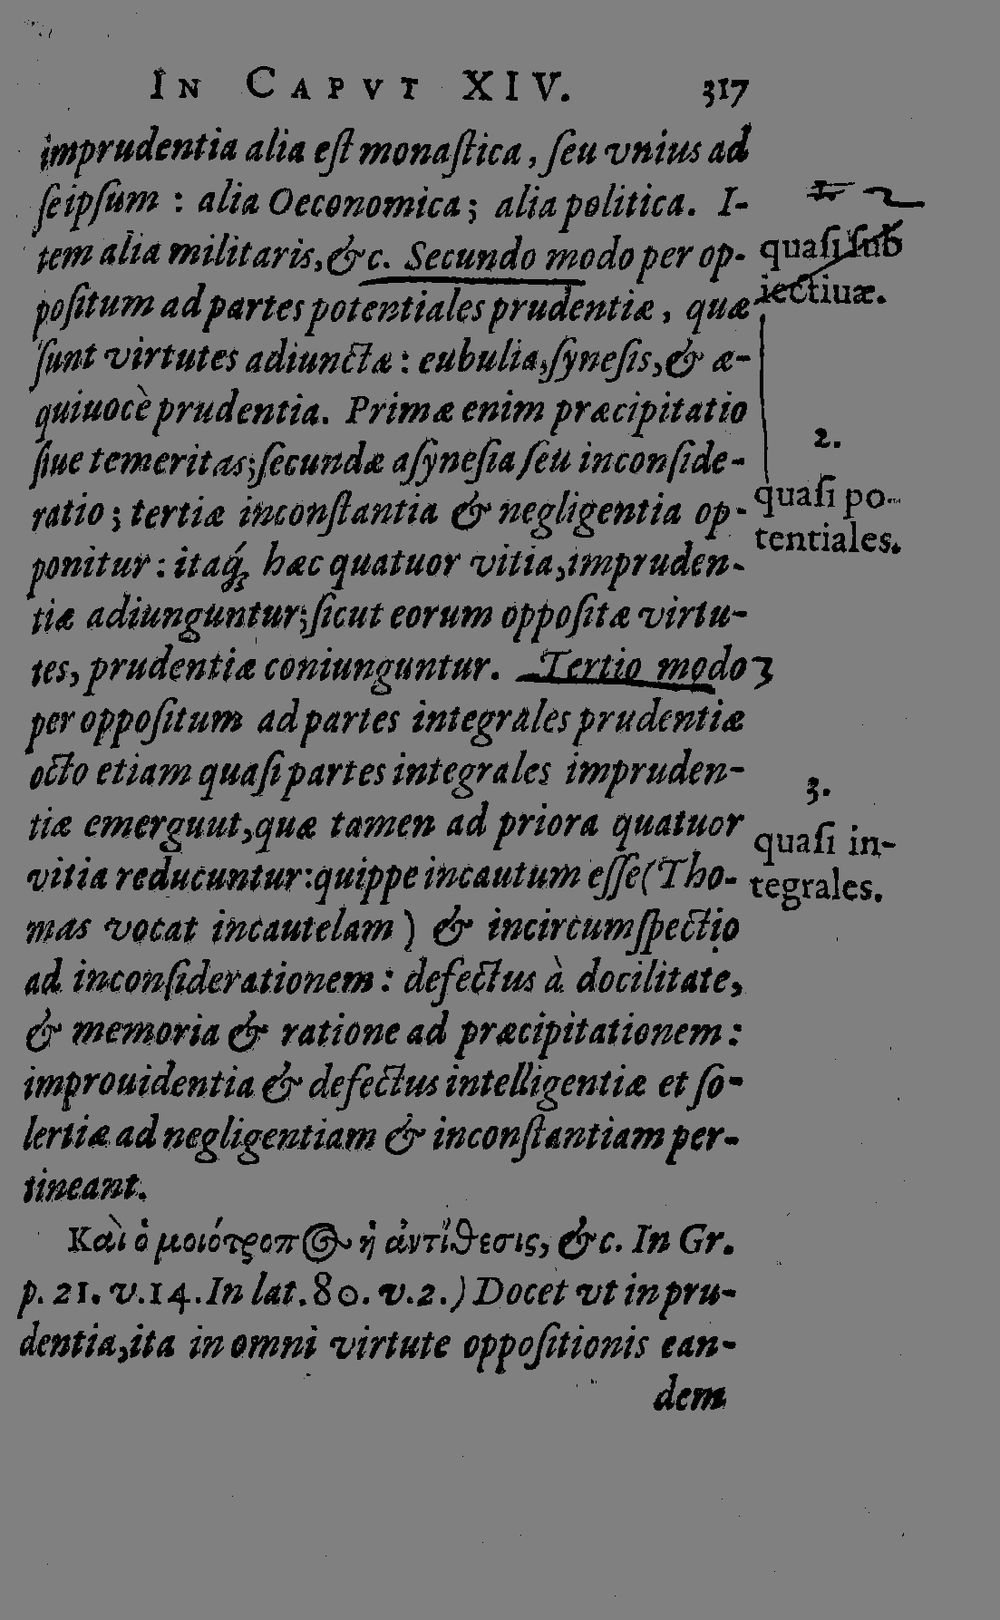 IN CAPVT XIV. 317
imprudentia alia est monastica, seu vnius ad
seipsum : alia Oeconomica; alia politica. I-
tem alia militaris, &c. Secundo modo per op-
positum ad partes potentiales prudentiæ, quæ
sunt virtutes adiunctæ : eubulia, synesis, & æ-
quiuocè prudentia. Primæ enim præcipitatio
siue temeritas; secundæ asynesia seu inconside-
ratio ; tertiæ inconstantia & negligentia op-
ponitur : itaq́; hæc quatuor vitia, impruden-
tiæ adiunguntur; sicut eorum oppositæ virtu-
tes, prudentiæ coniunguntur. Tertio modo 3
per oppositum ad partes integrales prudentiæ
octo etiam quasi partes integrales impruden-
tiæ emerguut, quæ tamen ad priora quatuor
vitia reducuntur: quippe incautum esse (Tho-
mas vocat incautelam) & incircumspectio
ad inconsiderationem : defectus à docilitate,
& memoria & ratione ad præcipitationem :
improuidentia & defectus intelligentiæ et so-
lertiæ ad negligentiam & inconstantiam per-
tineant.
Καὶ ὁ μοιότροπος ἡ ἀντίθεσις, &c. In Gr.
p. 21. v.14. In lat. 80. v.2.) Docet vt in pru-
dentia, ita in omni virtute oppositionis ean-
dem
2
quasi sub
iectiuæ.
2.
quasi po-
tentiales.
3.
quasi in-
tegrales.